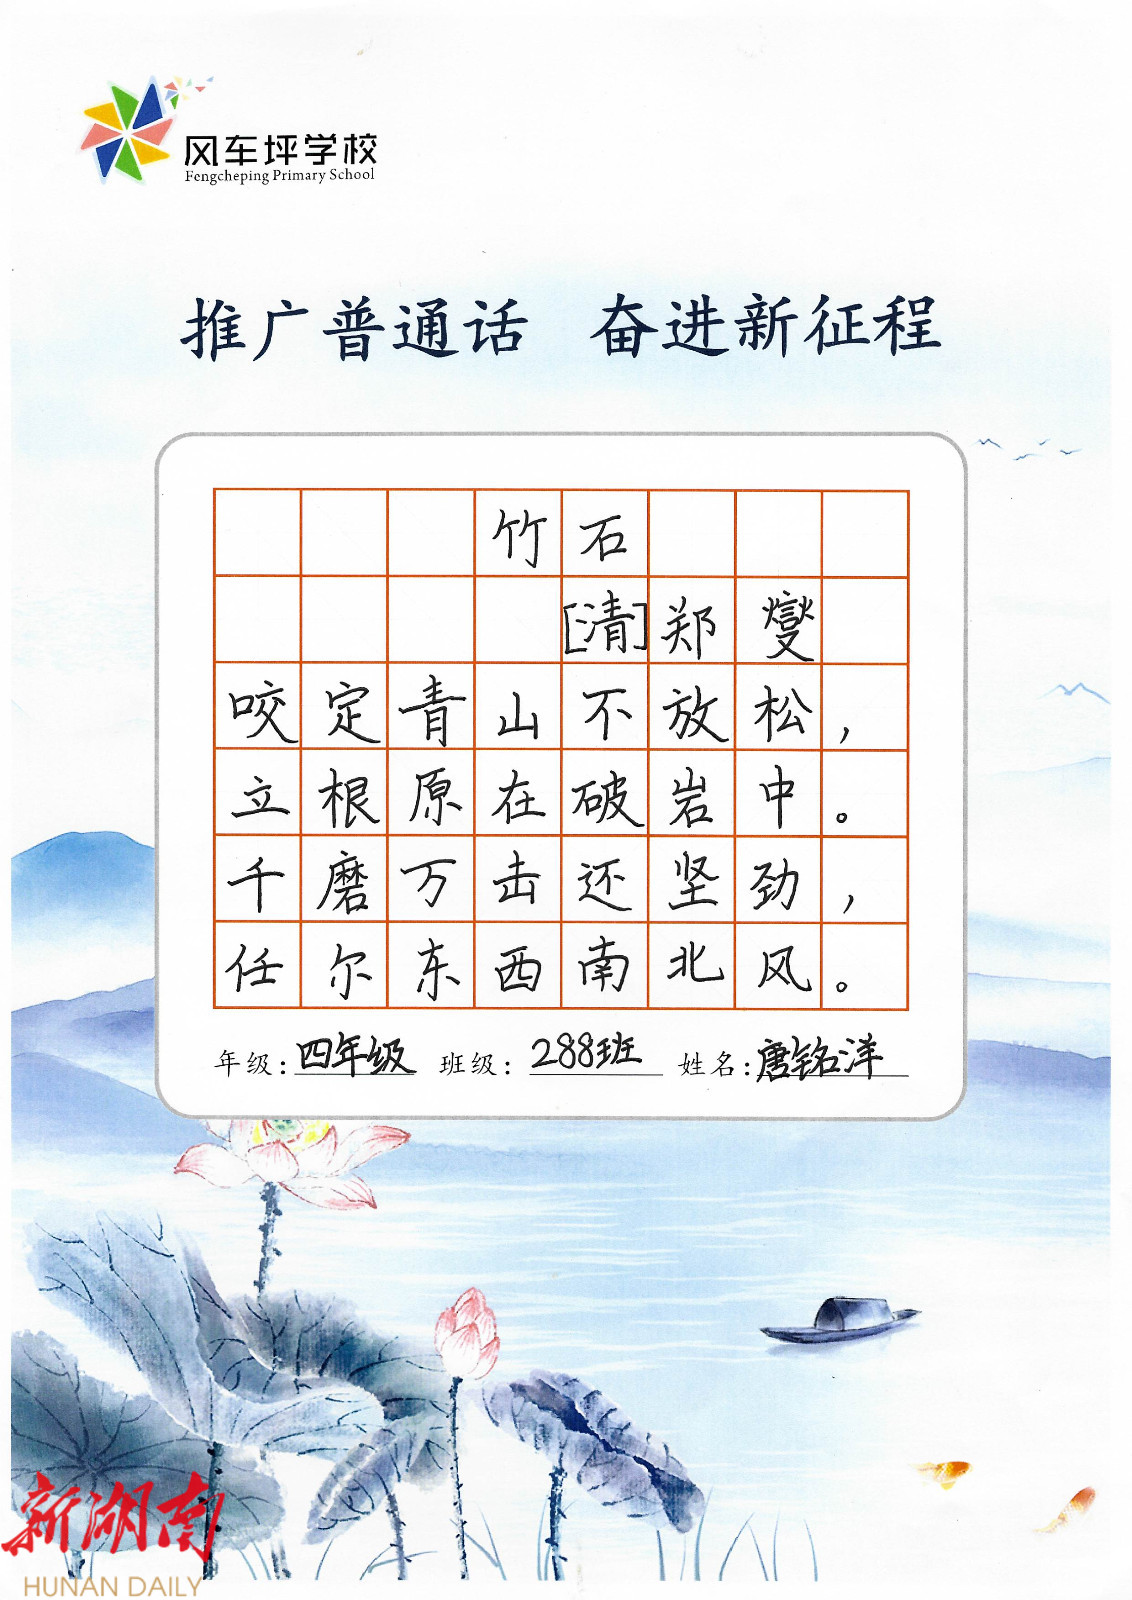 风车坪学校
Fengcheping Primary School
推广普通话 奋进新征程
竹石
[清]郑燮
咬定青山不放松，
立根原在破岩中。
千磨万击还坚劲，
任尔东西南北风。
年级：四年级 班级：288班 姓名：唐铭洋
新湖南
HUNAN DAILY